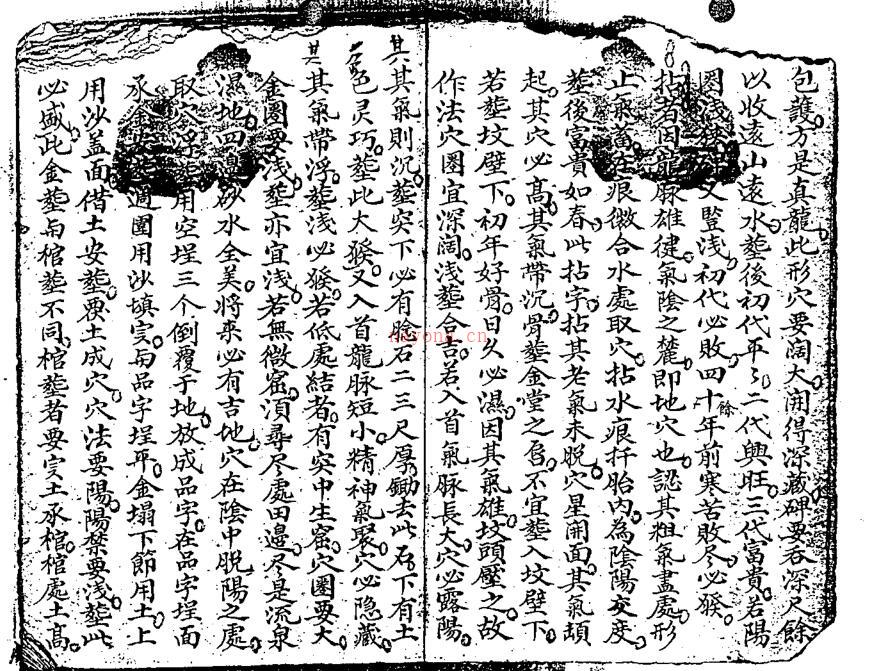 包護方是真龍此形穴要闊大開得深藏碑要吞深尺餘
以收遠山遠水塟後初代平〻二代興旺三代富貴若陽
圈淺 又豎淺初代必敗四十餘年前寒苦敗尽必發
拈者因龍脉雄健氣陰之麓即地穴也認其粗氣盡處形
止氣蓄在痕微合水處取穴拈水痕扦胎内為陰陽交度
塟後富貴如春此拈字拈其老氣未脫穴星開面其氣頡
起其穴必高其氣帶沉骨塟金堂之 不宜塟入坟壁下
若塟坟壁下初年好骨日久必濕因其氣雄坟頭壓之故
作法穴圈宜深闊淺塟合吉若入首氣脉長大穴必露陽
其其氣則沉塟突下必有 石二三尺厚鋤去此石下有土
五色灵巧塟此大發又入首龍脉短小精神氣聚穴必隐藏
其其氣帶浮塟淺必發若低處結者有突中生窟穴圈要大
金圈要淺塟亦宜淺若無微窟須尋尽處田邊尽是流泉
濕地四邊砂水全美將來必有吉地穴在陰中脫陽之處
取穴浮塟用空埕三个倒覆于地放成品字在品字埕面
承金安塟週圍用沙填寔与品字埕平金塌下節用土上
用沙盖面借土安塟覆土成穴穴法要陽陽禁要淺塟此
必盛此金塟与棺塟不同棺塟者要寔土承棺棺處土高
nayona.cn